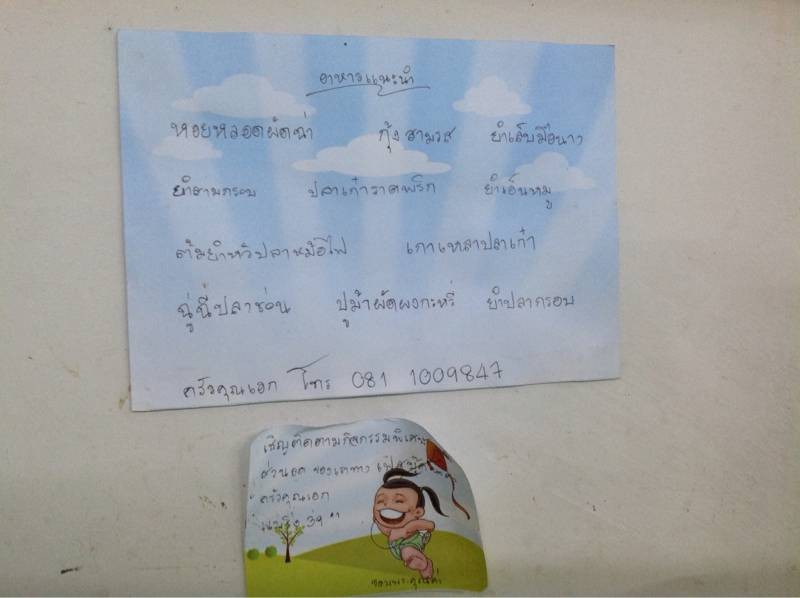 อาหารแนะนำ
หอยหลอดผัดฉ่า กุ้งสามรส ยำเล็บมือนาง
ยำสามกรอบ ปลาเก๋าราดพริก ยำเอ็นหมู
ต้มยำหัวปลาหม้อไฟ เกาเหลาปลาเก๋า
ฉู่ฉี่ปลาช่อน ปูม้าผัดผงกะหรี่ ยำปลากรอบ
ครัวคุณเอก โทร 081 1009847
เชิญติดตามกิจกรรมพิเศษ
ส่วนลด ของเราทาง
ครัวคุณเอก
ขอบพระคุณค่ะ